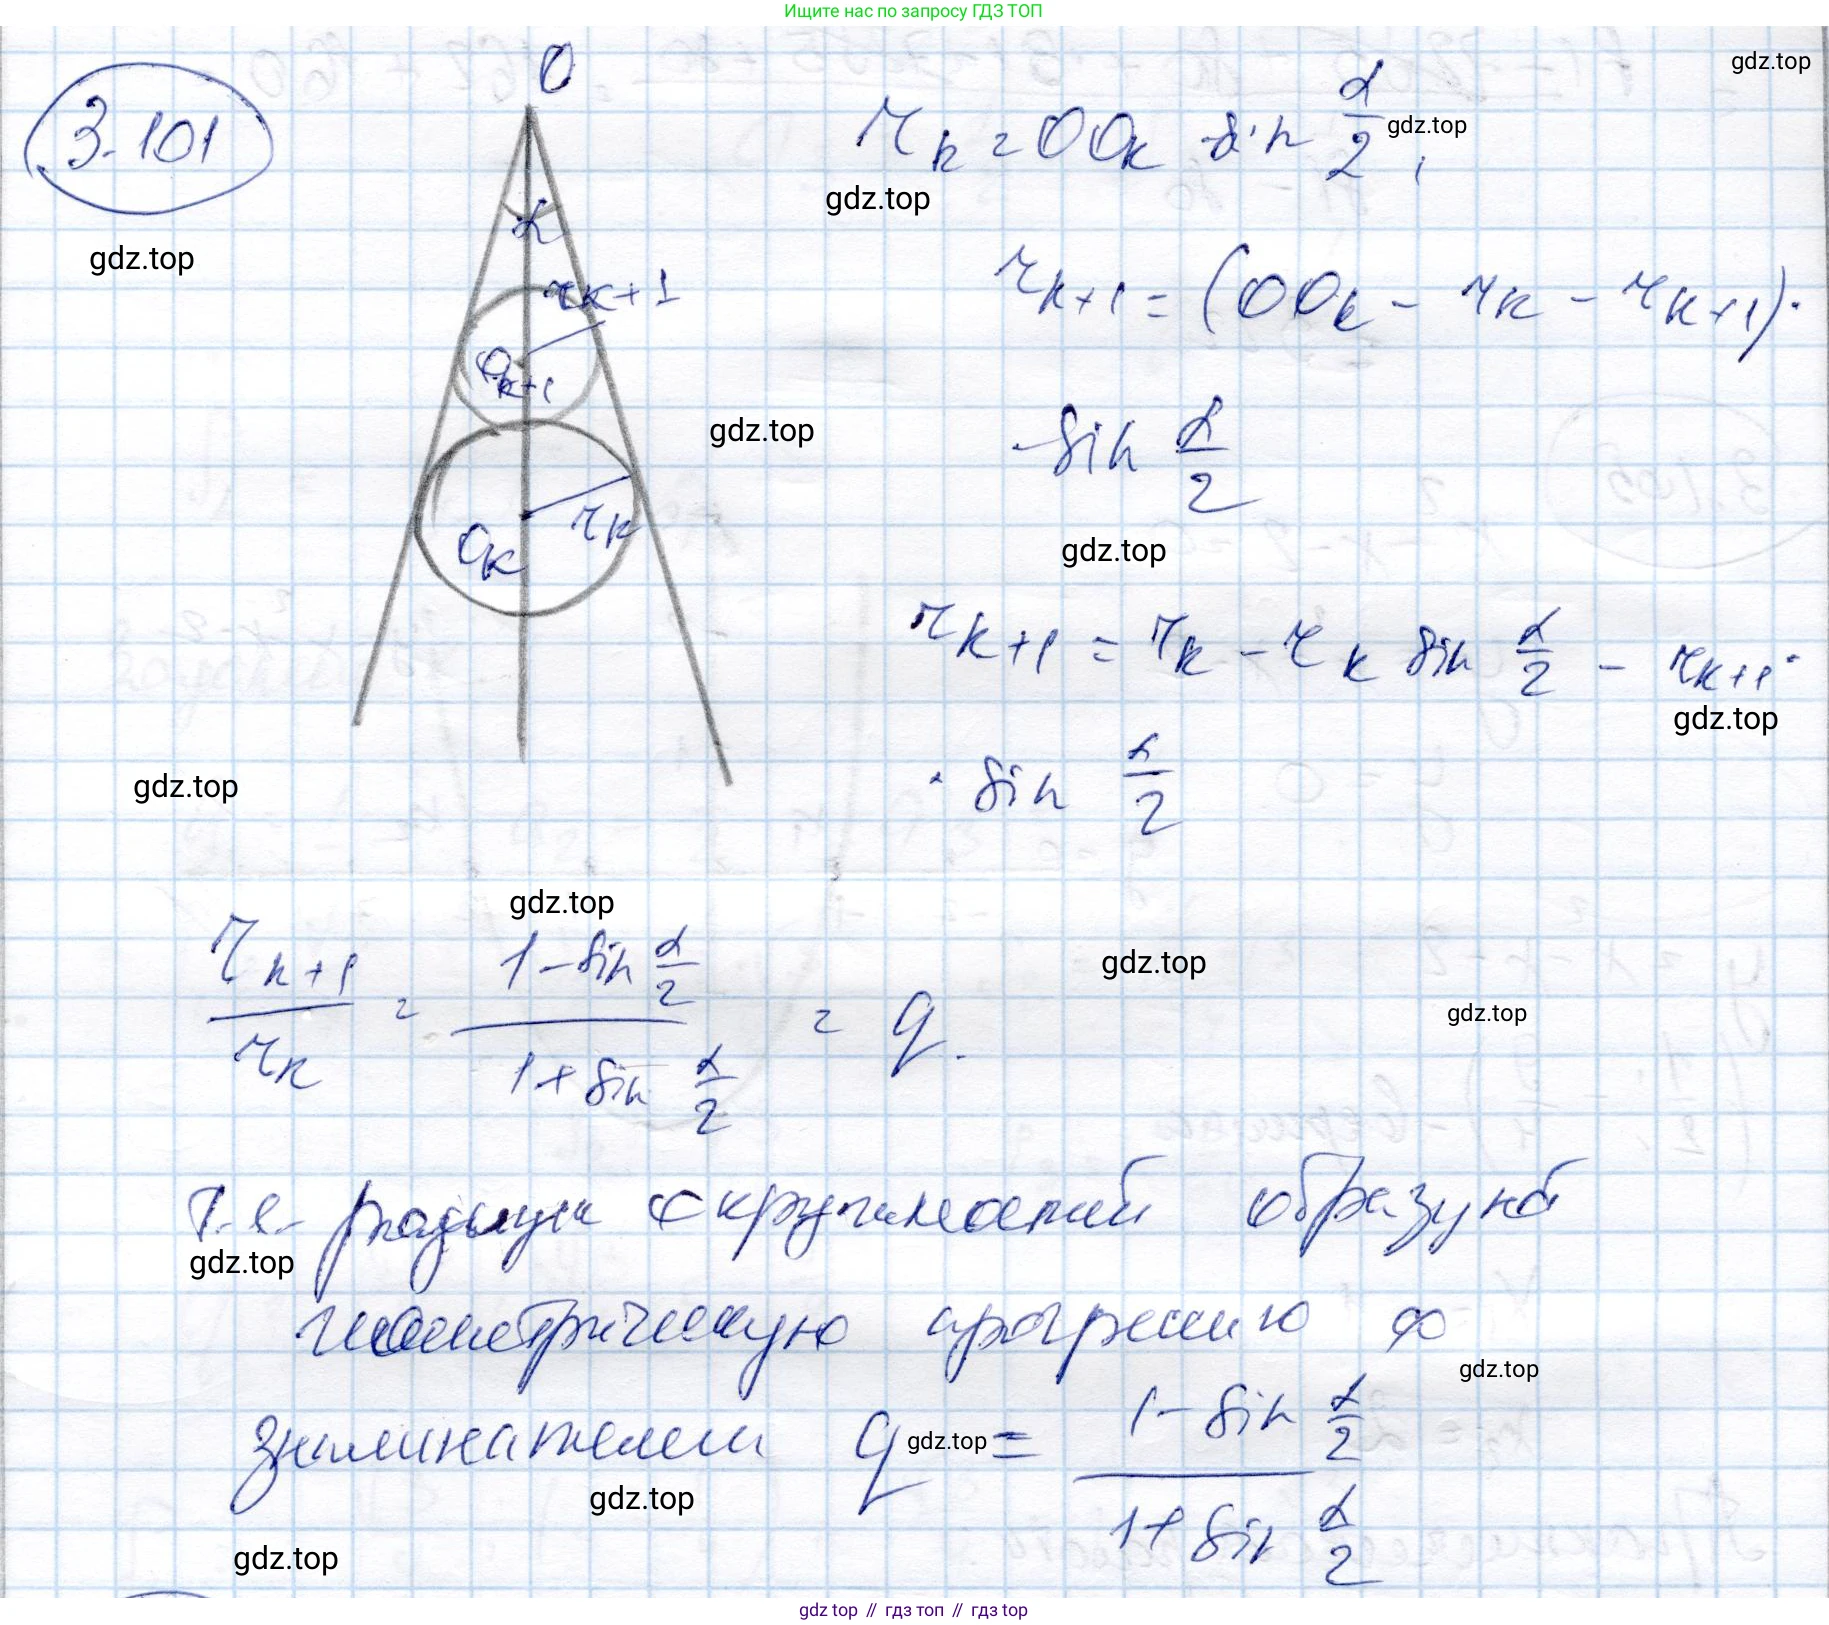 Ищите нас по запросу ГДЗ ТОП
3.101
gdz.top
O
α
r_{k+1}
O_{k+1}
O_k
r_k
gdz.top
r_k = OO_k sin α/2,
gdz.top
gdz.top
r_{k+1} = (OO_k - r_k - r_{k+1}) ·
gdz.top
· sin α/2
gdz.top
r_{k+1} = r_k - r_k sin α/2 - r_{k+1} ·
gdz.top
gdz.top
· sin α/2
gdz.top
r_{k+1}/r_k = (1 - sin α/2)/(1 + sin α/2) = q.
gdz.top
gdz.top
Т.е. радиусы окружностей образуют
gdz.top
геометрическую прогрессию со
gdz.top
знаменателем q = (1 - sin α/2)/(1 + sin α/2)
gdz.top
gdz.top
gdz.top
gdz top // гдз топ // gdz top